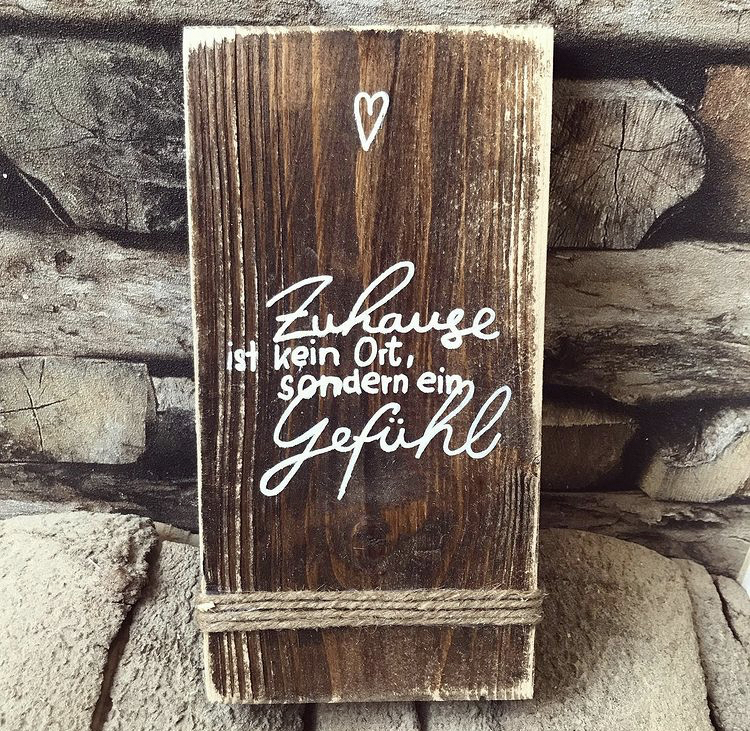 Zuhause
ist kein Ort,
sondern ein
Gefühl